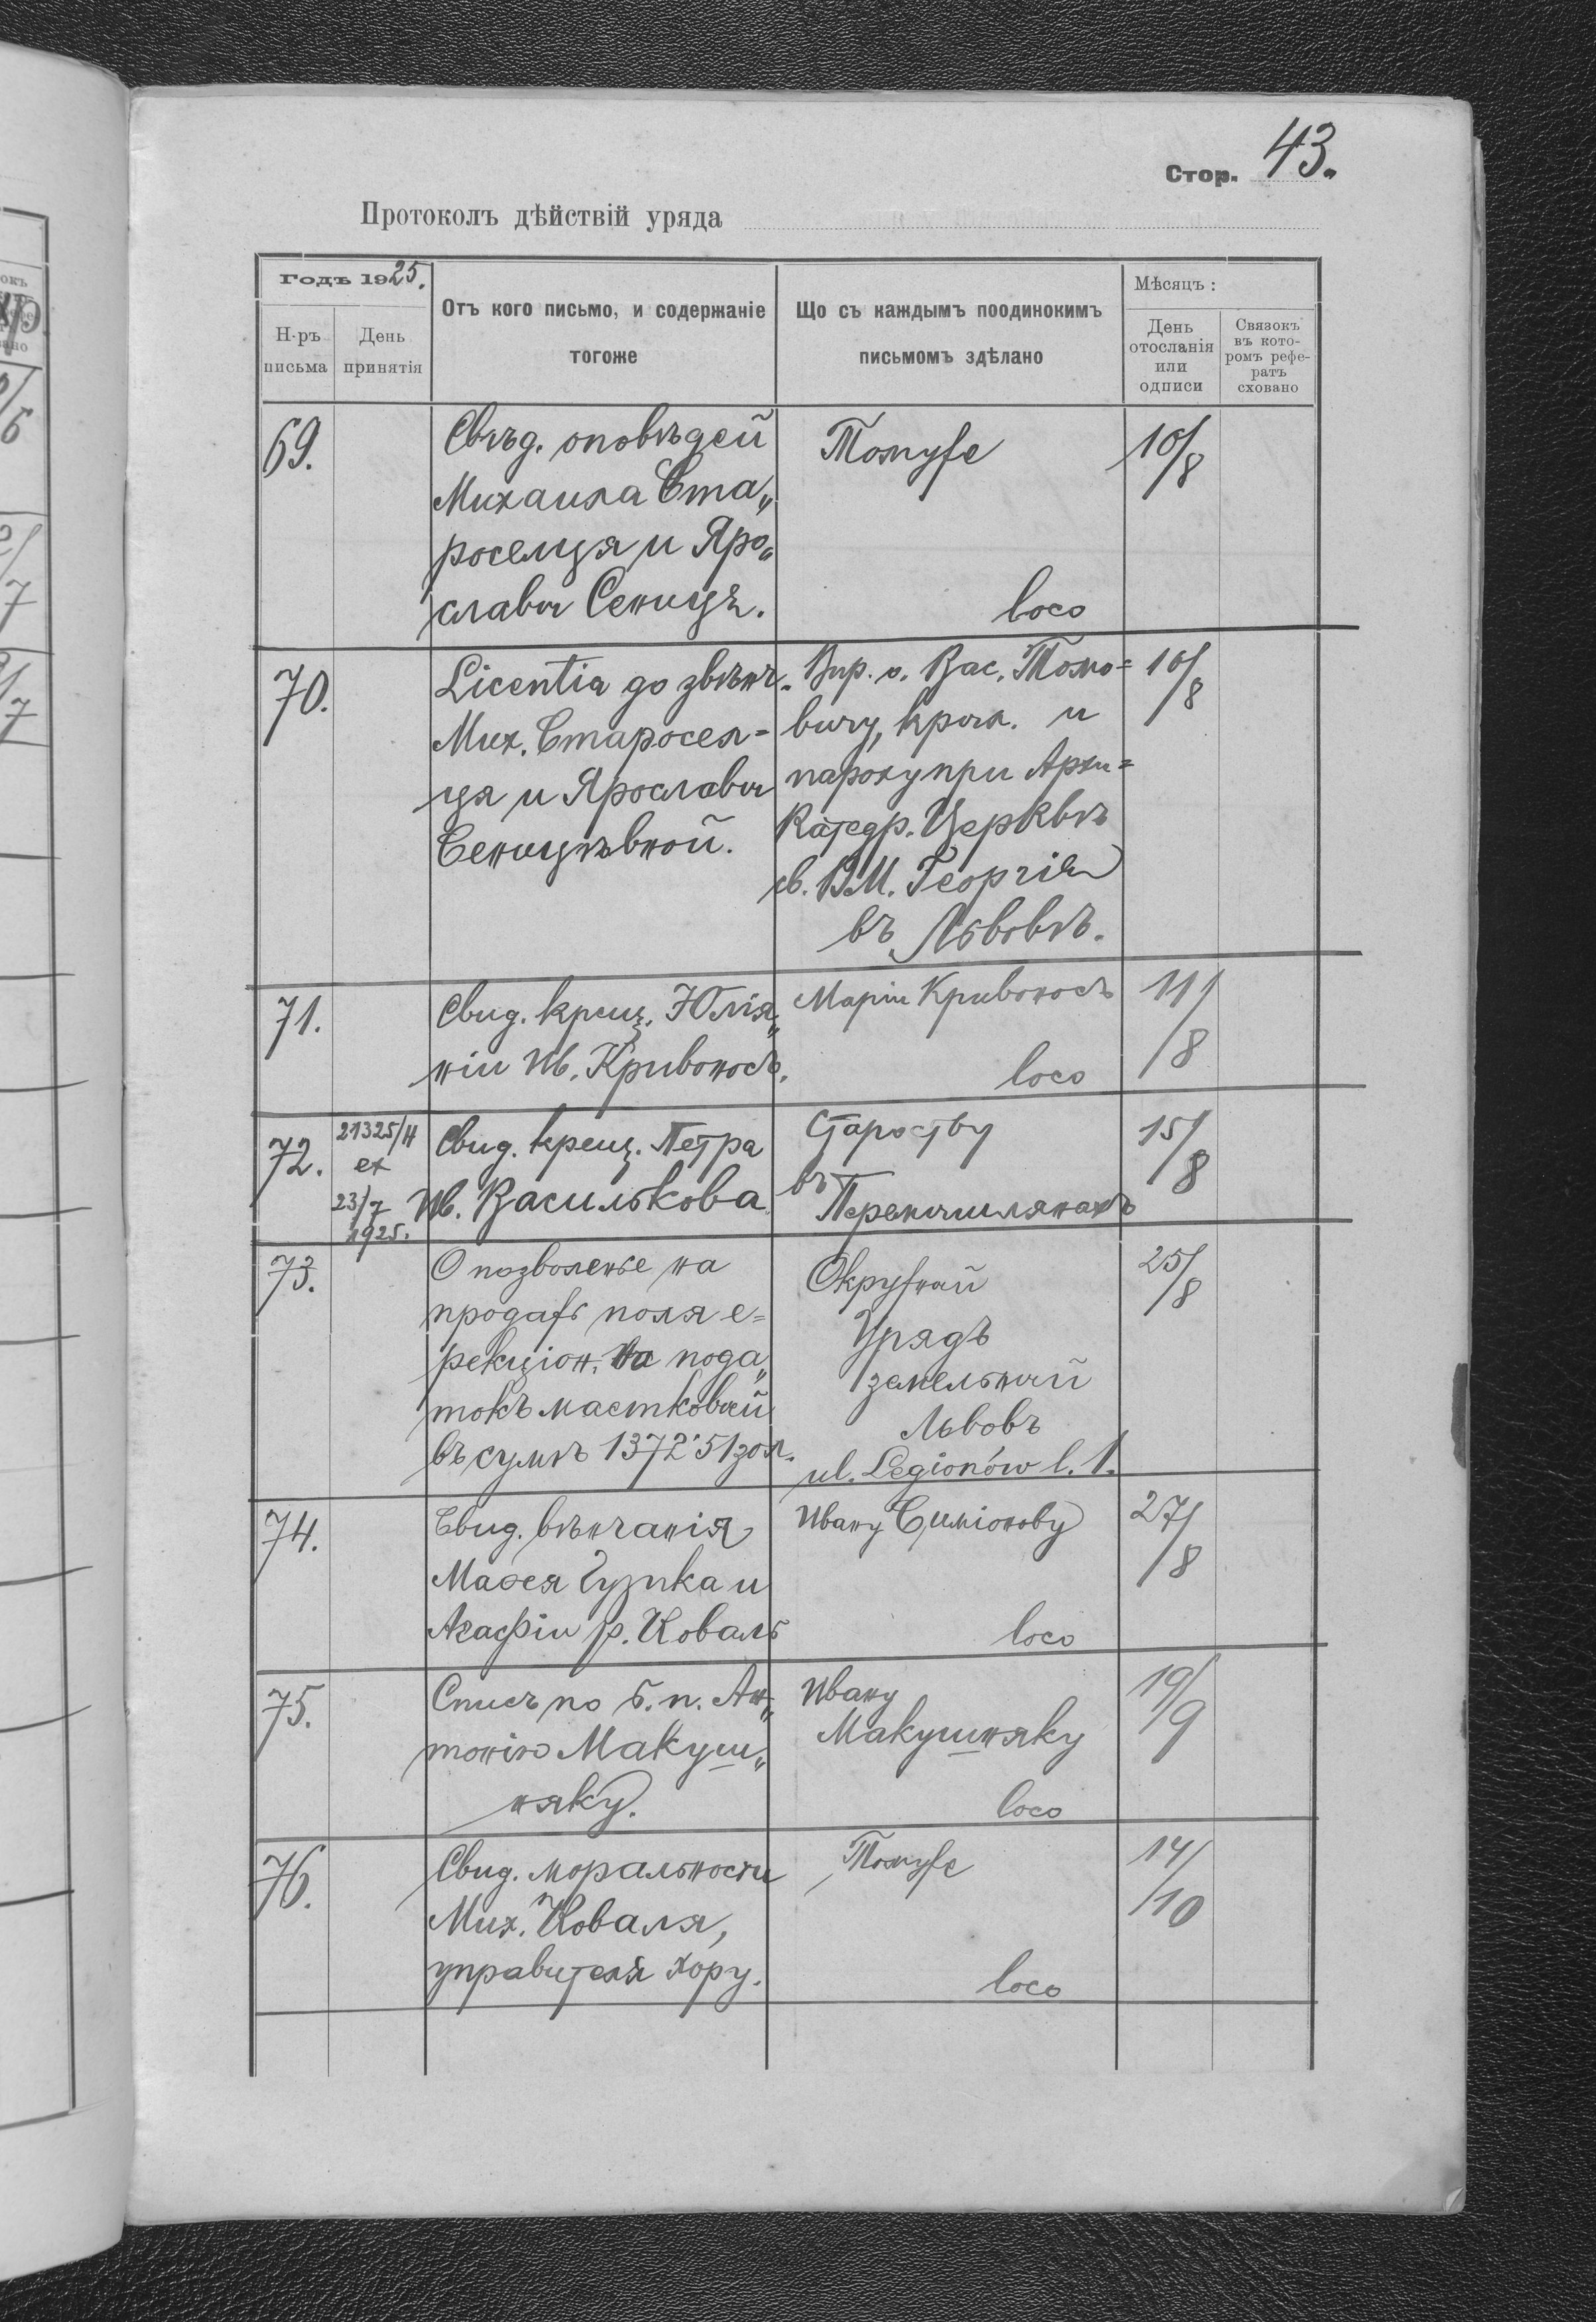 Стор. 43.
Протоколъ дѣйствій уряда
Годъ 1925.
Н-ръ письма
День принятія
Отъ кого письмо, и содержаніе
тогоже
Що съ каждымъ поодинокимъ
письмомъ здѣлано
Мѣсяцъ :
День
отосланія
или
одписи
Связокъ
въ кото-
ромъ рефе-
ратъ
сховано
69.
Свѣд. оповѣдей
Михаила Ста„
роселця и Яро„
славы Сеницѣ.
Томуже
loco
10/8
70.
Licentia до звѣнч.
Мих. Старосел=
ця и Ярославы
Сеницѣвной.
Впр. о. Вас. Томо=
вичу, крыл. и
пароху при Архи=
Катедр. Церквѣ
св. ВМ. Георгія
въ Львовѣ.
10/8
71.
Свид. крещ. Юлія„
ніи Ив. Кривоносъ.
Маріи Кривоносъ
loco
11/8
72.
21325/H
ex
23/7
1925.
Свид. крещ. Петра
Ив. Василькова
Староству
въ
Перемышлянахъ
15/8
73.
О позволенье на
продажь поля е=
рекціон. на пода„
токъ мастковый
въ сумѣ 1372·51 зол.
Окружный
Урядъ
земельный
Львовъ
ul. Legionów l. 1.
25/8
74.
Свид. вѣнчанія
Маѳея Гушка и
Агафіи р. Коваль
Ивану Симіонову
loco
27/8
75.
Списъ по б. п. Ан„
тонію Макуш„
няку.
Ивану
Макушняку
loco
19/9
76.
Свид. моральности
Мих. Коваля,
управителя хору.
Томуже
loco
14/10